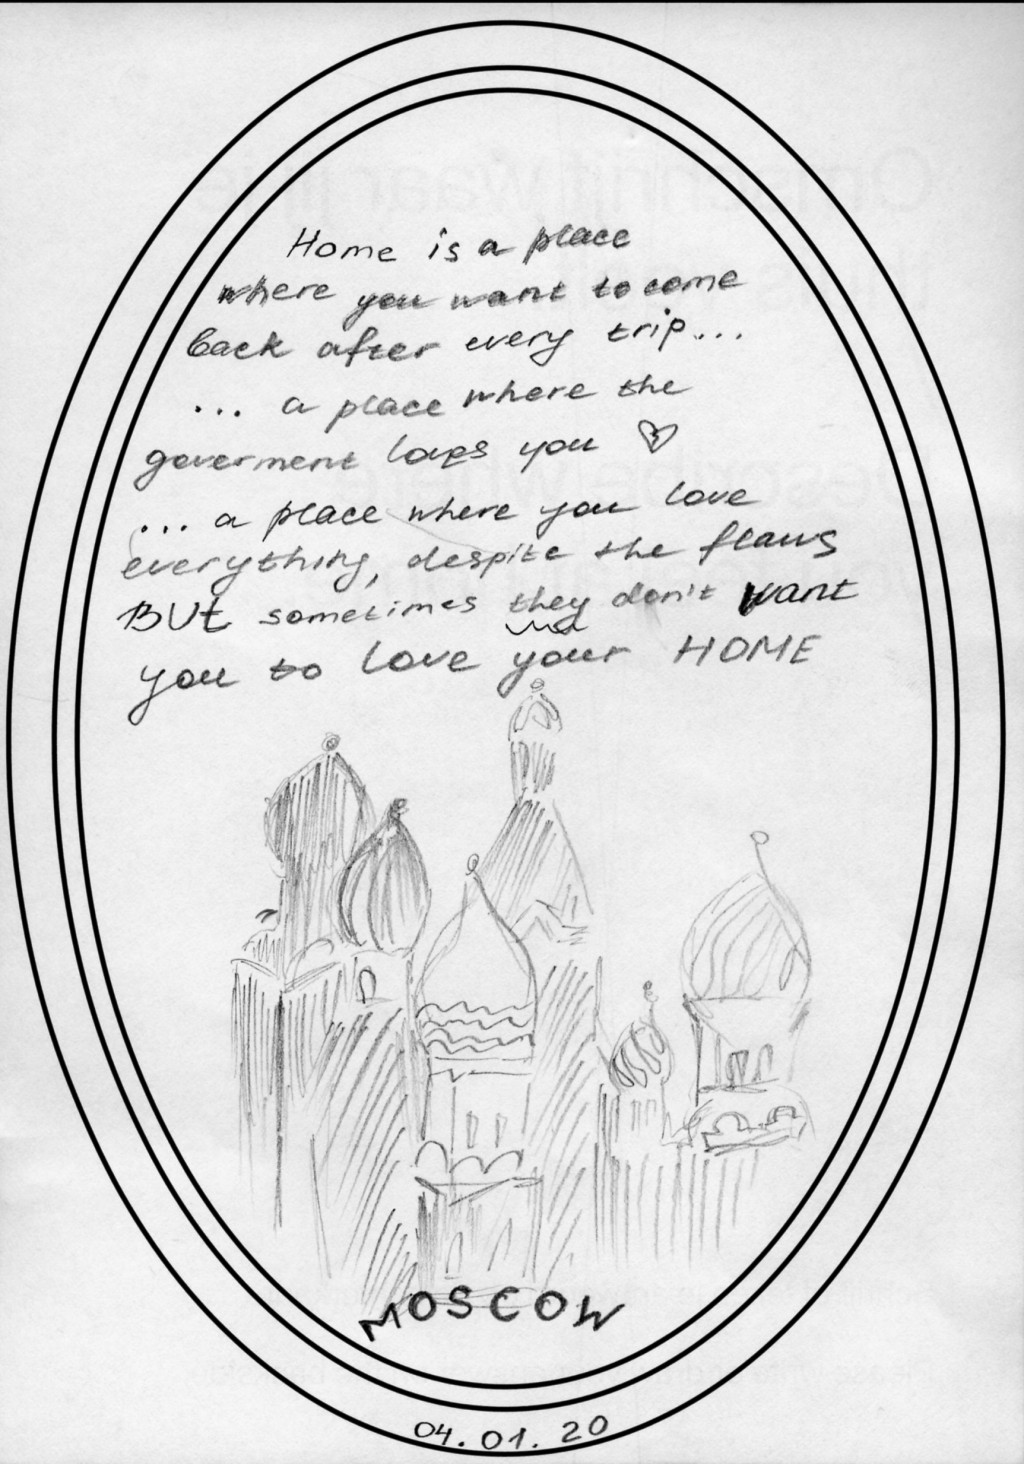 Home is a place
where you want to come
back after every trip...
... a place where the
goverment loves you
... a place where you love
everything, despite the flaws
BUt sometimes they don't want
you to love your HOME
MOSCOW
04.01.20